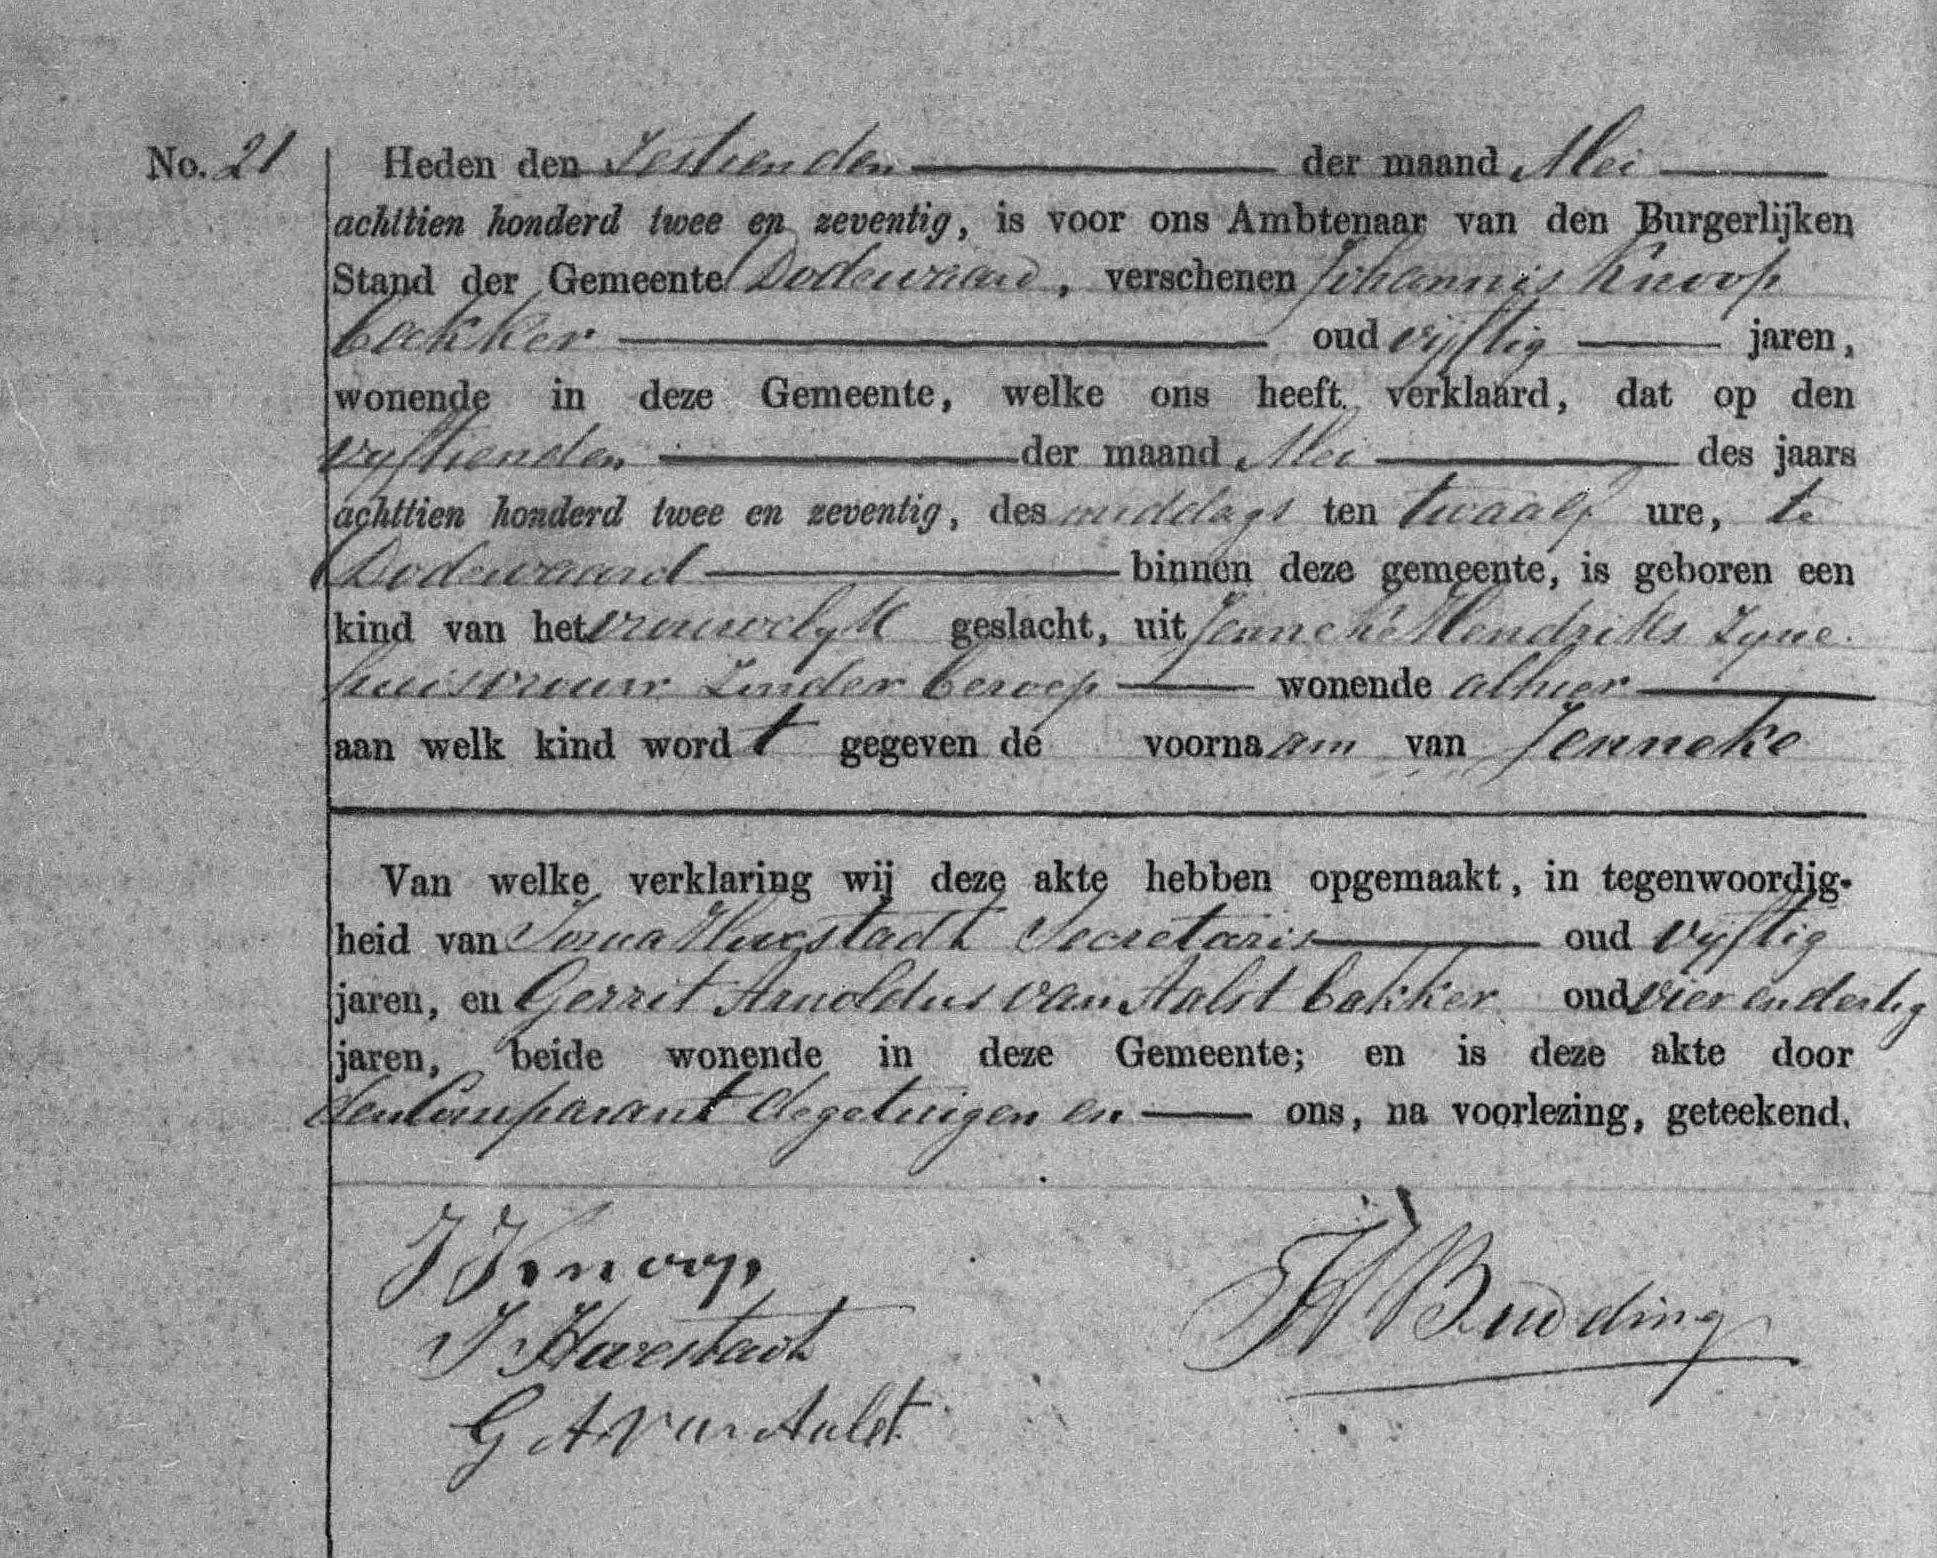 No. 21
Heden den Zestienden der maand Mei
achttien honderd twee en zeventig, is voor ons Ambtenaar van den Burgerlijken
Stand der Gemeente Dodewaard, verschenen Johannis Knoop
bakker oud vijftig jaren,
wonende in deze Gemeente, welke ons heeft verklaard, dat op den
vijftienden der maand Mei des jaars
achttien honderd twee en zeventig, des middags ten twaalf ure, te
Dodewaard binnen deze gemeente, is geboren een
kind van het vrouwelyk geslacht, uit Jenneke Hendriks zyne
huisvrouw zonder beroep wonende alhier
aan welk kind wordt gegeven de voornaam van Jenneke
Van welke verklaring wij deze akte hebben opgemaakt, in tegenwoordig-
heid van Havestadt Secretaris oud vyftig
jaren, en Gerrit Arnoldus van Aalst bakker oud vier en dertig
jaren, beide wonende in deze Gemeente; en is deze akte door
den Comparant de getuigen en ons, na voorlezing, geteekend.
J Knoop
J Havestadt
G A van Aalst
Budding